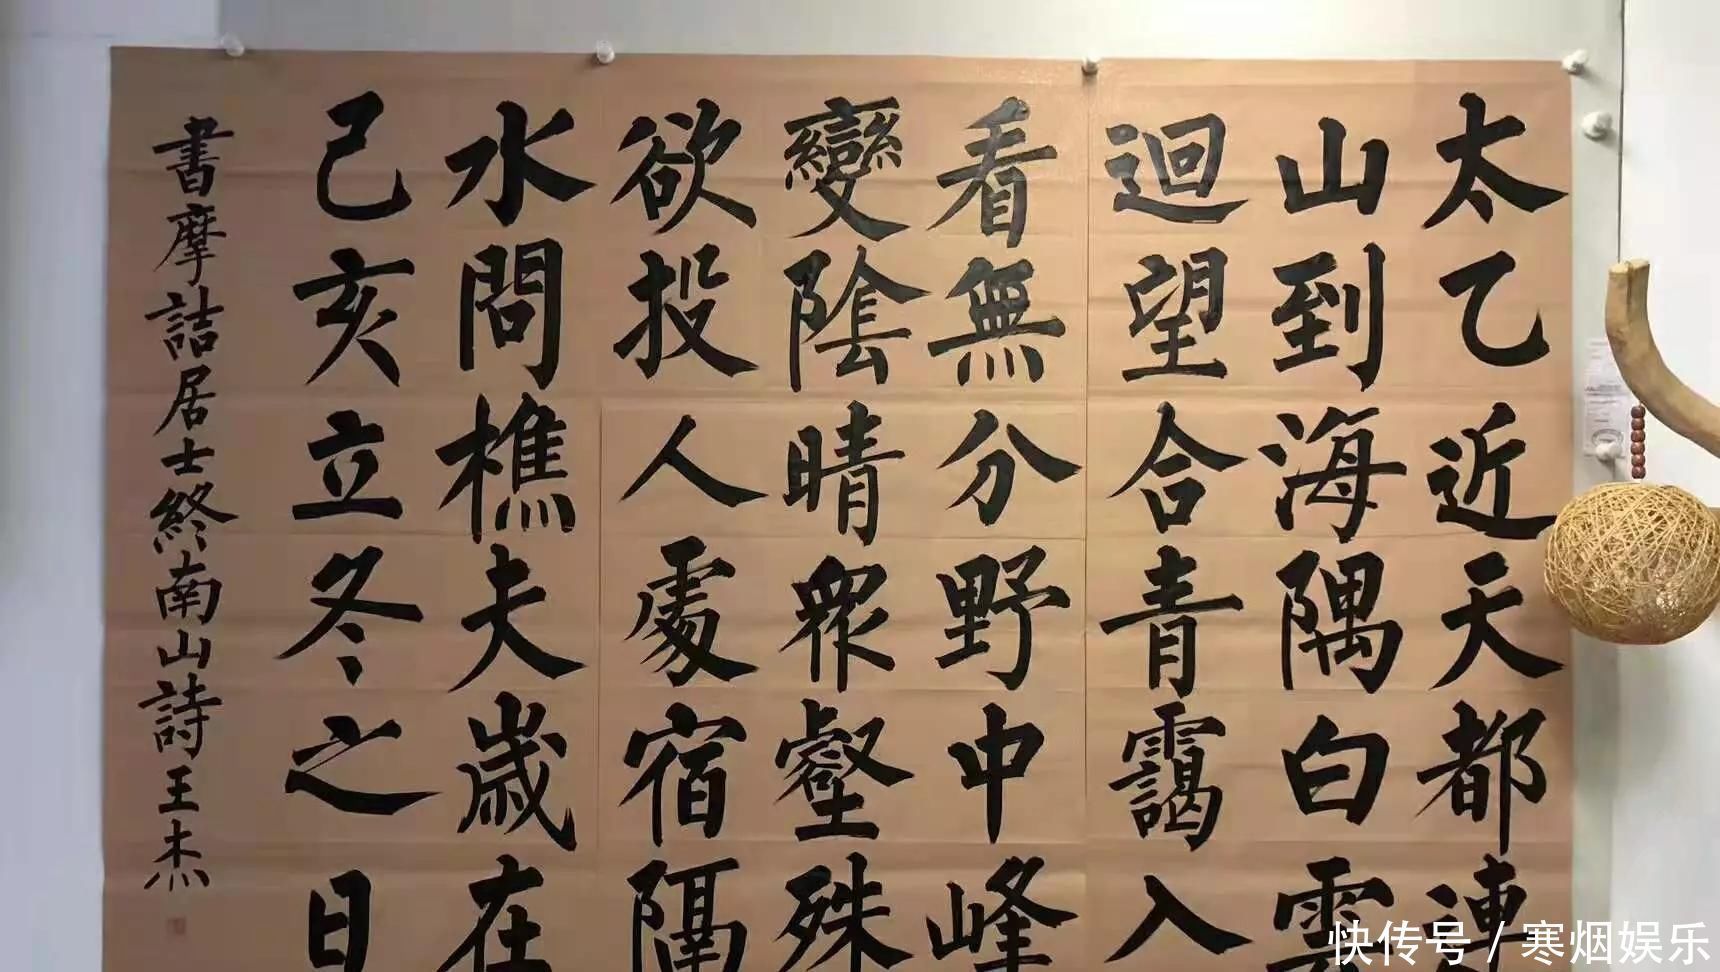 太乙近天都連
山到海隅白雲
迴望合青靄入
看無分野中峰
變陰晴衆壑殊
欲投人處宿隔
水問樵夫歲在
己亥立冬之日
書摩詰居士終南山詩王杰
快传号 / 寒烟娱乐